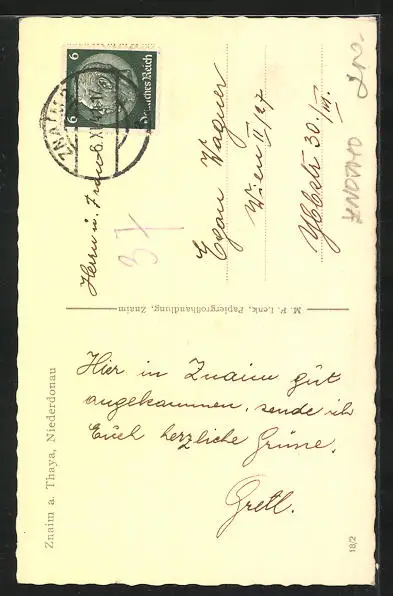 Znaim a. Thaya, Niederdonau
Hier in Znaim gut
angekommen, sende ich
Euch herzliche Grüsse.
Gretl.
M. F. Lenk, Papiergroßhandlung, Znaim
Deutsches Reich
6 6
ZNAIM
37
Herrn u. Frau
Egon Wagner
Wien II/27
Ybbsstr 30/III.
18/2